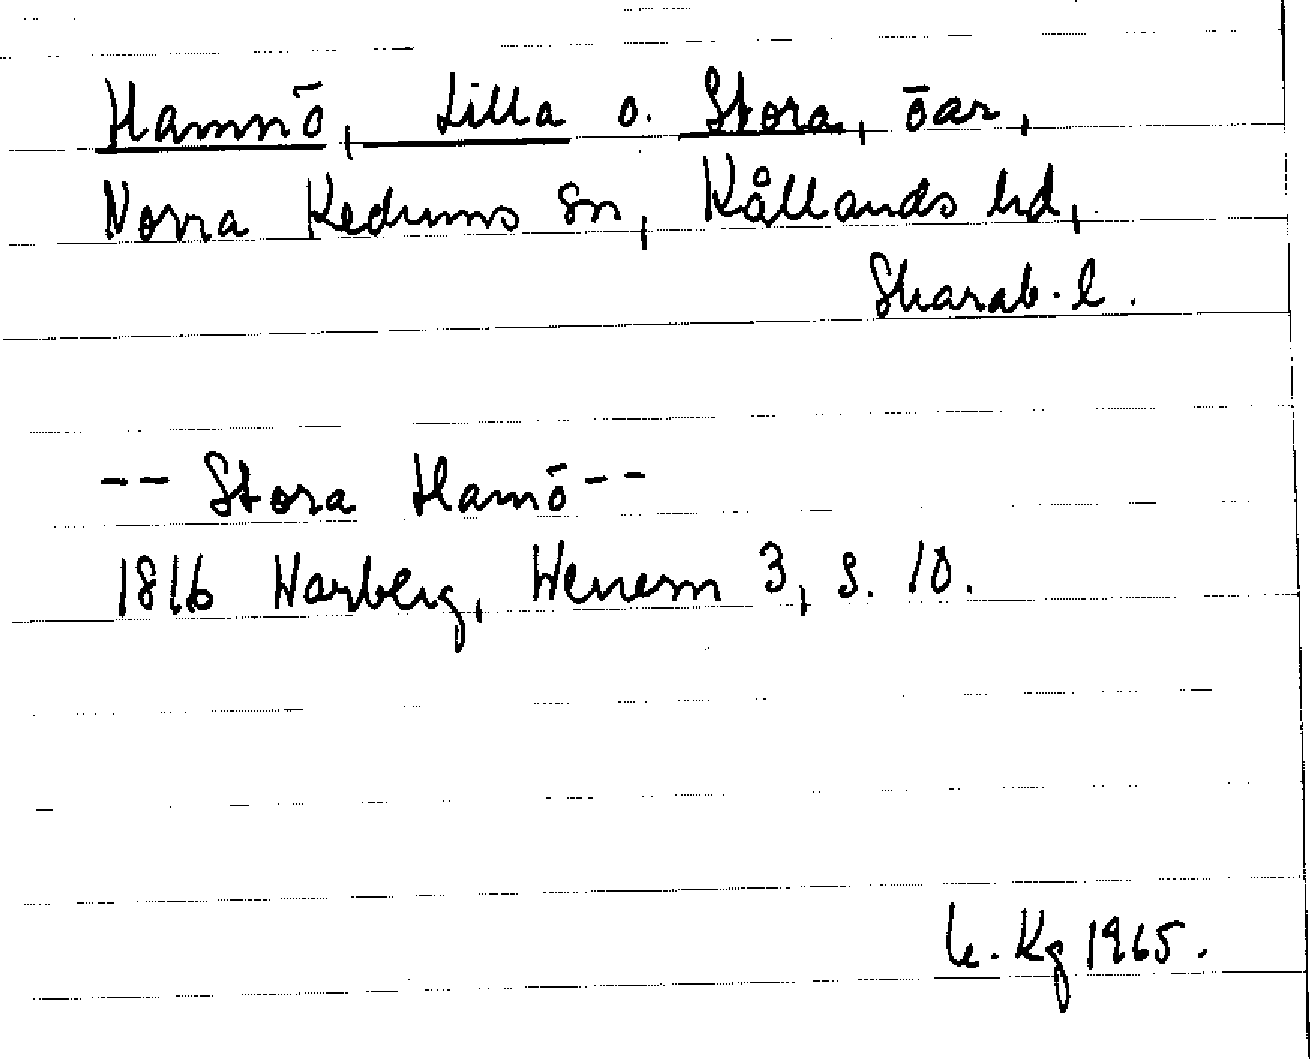 Hamnö, Lilla o. Stora, öar,
Norra Kedums sn, Kållands hd,
Skarab. l.
-- Stora Hamö --
1816 Warberg, Wenern 3, s. 10.
Kg 1965.